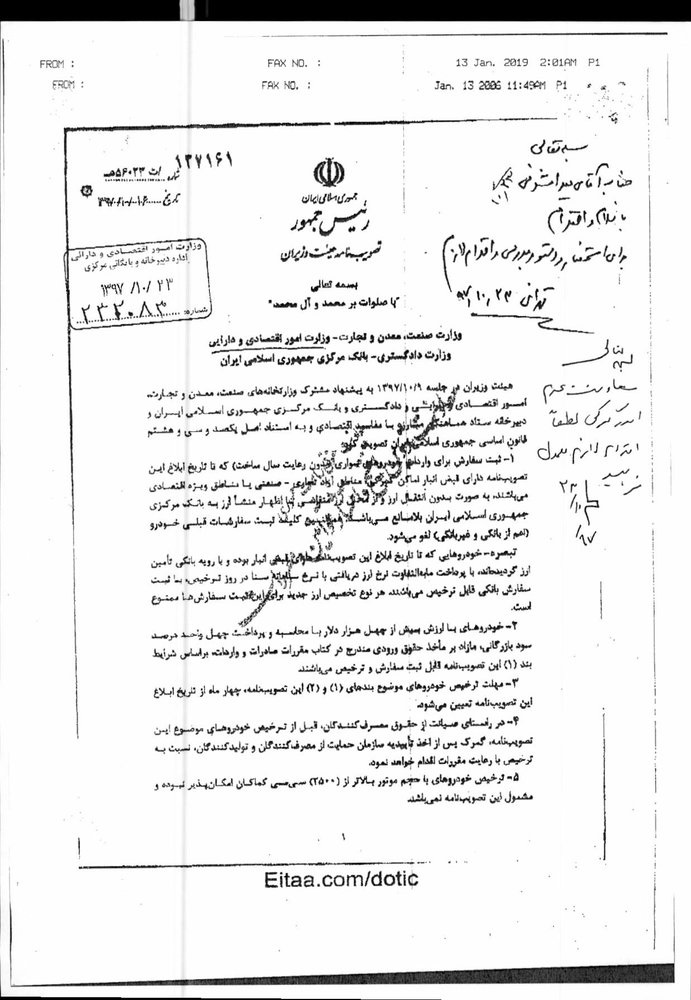 FROM : FAX NO. : 13 Jan. 2019 2:01AM P1
FROM : FAX NO. : Jan. 13 2006 11:49AM P1
جمهوری اسلامی ایران
رئیس جمهور
تصویب‌نامه هیئت وزیران
شماره ۱۳۷۱۶۱/ت۵۶۰۲۳هـ
تاریخ ۱۳۹۷/۱۰/۱۶
وزارت امور اقتصادی و دارائی
اداره دبیرخانه و بایگانی مرکزی
۱۳۹۷/۱۰/۲۳
شماره: ۲۳۲۰۸۳
بسمه تعالی
"با صلوات بر محمد و آل محمد"
وزارت صنعت، معدن و تجارت- وزارت امور اقتصادی و دارایی
وزارت دادگستری- بانک مرکزی جمهوری اسلامی ایران
هیئت وزیران در جلسه ۱۳۹۷/۱۰/۹ به پیشنهاد مشترک وزارتخانه‌های صنعت، معدن و تجارت،
امور اقتصادی و دارایی و دادگستری و بانک مرکزی جمهوری اسلامی ایران و
دبیرخانه ستاد هماهنگی مبارزه با مفاسد اقتصادی و به استناد اصل یکصد و سی و هشتم
قانون اساسی جمهوری اسلامی ایران تصویب کرد:
۱- ثبت سفارش برای واردات خودروهای سواری (بدون رعایت سال ساخت) که تا تاریخ ابلاغ این
تصویب‌نامه دارای قبض انبار اماکن گمرکی، مناطق آزاد تجاری - صنعتی یا مناطق ویژه اقتصادی
می‌باشند، به صورت بدون انتقال ارز و از محل ارز متقاضی با اظهار منشأ ارز به بانک مرکزی
جمهوری اسلامی ایران بلامانع می‌باشد. همچنین کلیه ثبت سفارشات قبلی خودرو
(اعم از بانکی و غیربانکی) لغو می‌شود.
تبصره- خودروهایی که تا تاریخ ابلاغ این تصویب‌نامه دارای قبض انبار بوده و با رویه بانکی تأمین
ارز گردیده‌اند، با پرداخت مابه‌التفاوت نرخ ارز دریافتی با نرخ سامانه سنا در روز ترخیص، با ثبت
سفارش بانکی قابل ترخیص می‌باشند. هر نوع تخصیص ارز جدید برای این ثبت سفارش‌ها ممنوع
است.
۲- خودروهای با ارزش بیش از چهل هزار دلار با محاسبه و پرداخت چهل واحد درصد
سود بازرگانی، مازاد بر مأخذ حقوق ورودی مندرج در کتاب مقررات صادرات و واردات، براساس شرایط
بند (۱) این تصویب‌نامه قابل ثبت سفارش و ترخیص می‌باشند.
۳- مهلت ترخیص خودروهای موضوع بندهای (۱) و (۲) این تصویب‌نامه، چهار ماه از تاریخ ابلاغ
این تصویب‌نامه تعیین می‌شود.
۴- در راستای صیانت از حقوق مصرف‌کنندگان، قبل از ترخیص خودروهای موضوع این
تصویب‌نامه، گمرک پس از اخذ تأییدیه سازمان حمایت از مصرف‌کنندگان و تولیدکنندگان، نسبت به
ترخیص با رعایت مقررات اقدام خواهد نمود.
۵- ترخیص خودروهای با حجم موتور بالاتر از (۲۵۰۰) سی‌سی کماکان امکان‌پذیر نبوده و
مشمول این تصویب‌نامه نمی‌باشد.
۱
Eitaa.com/dotic